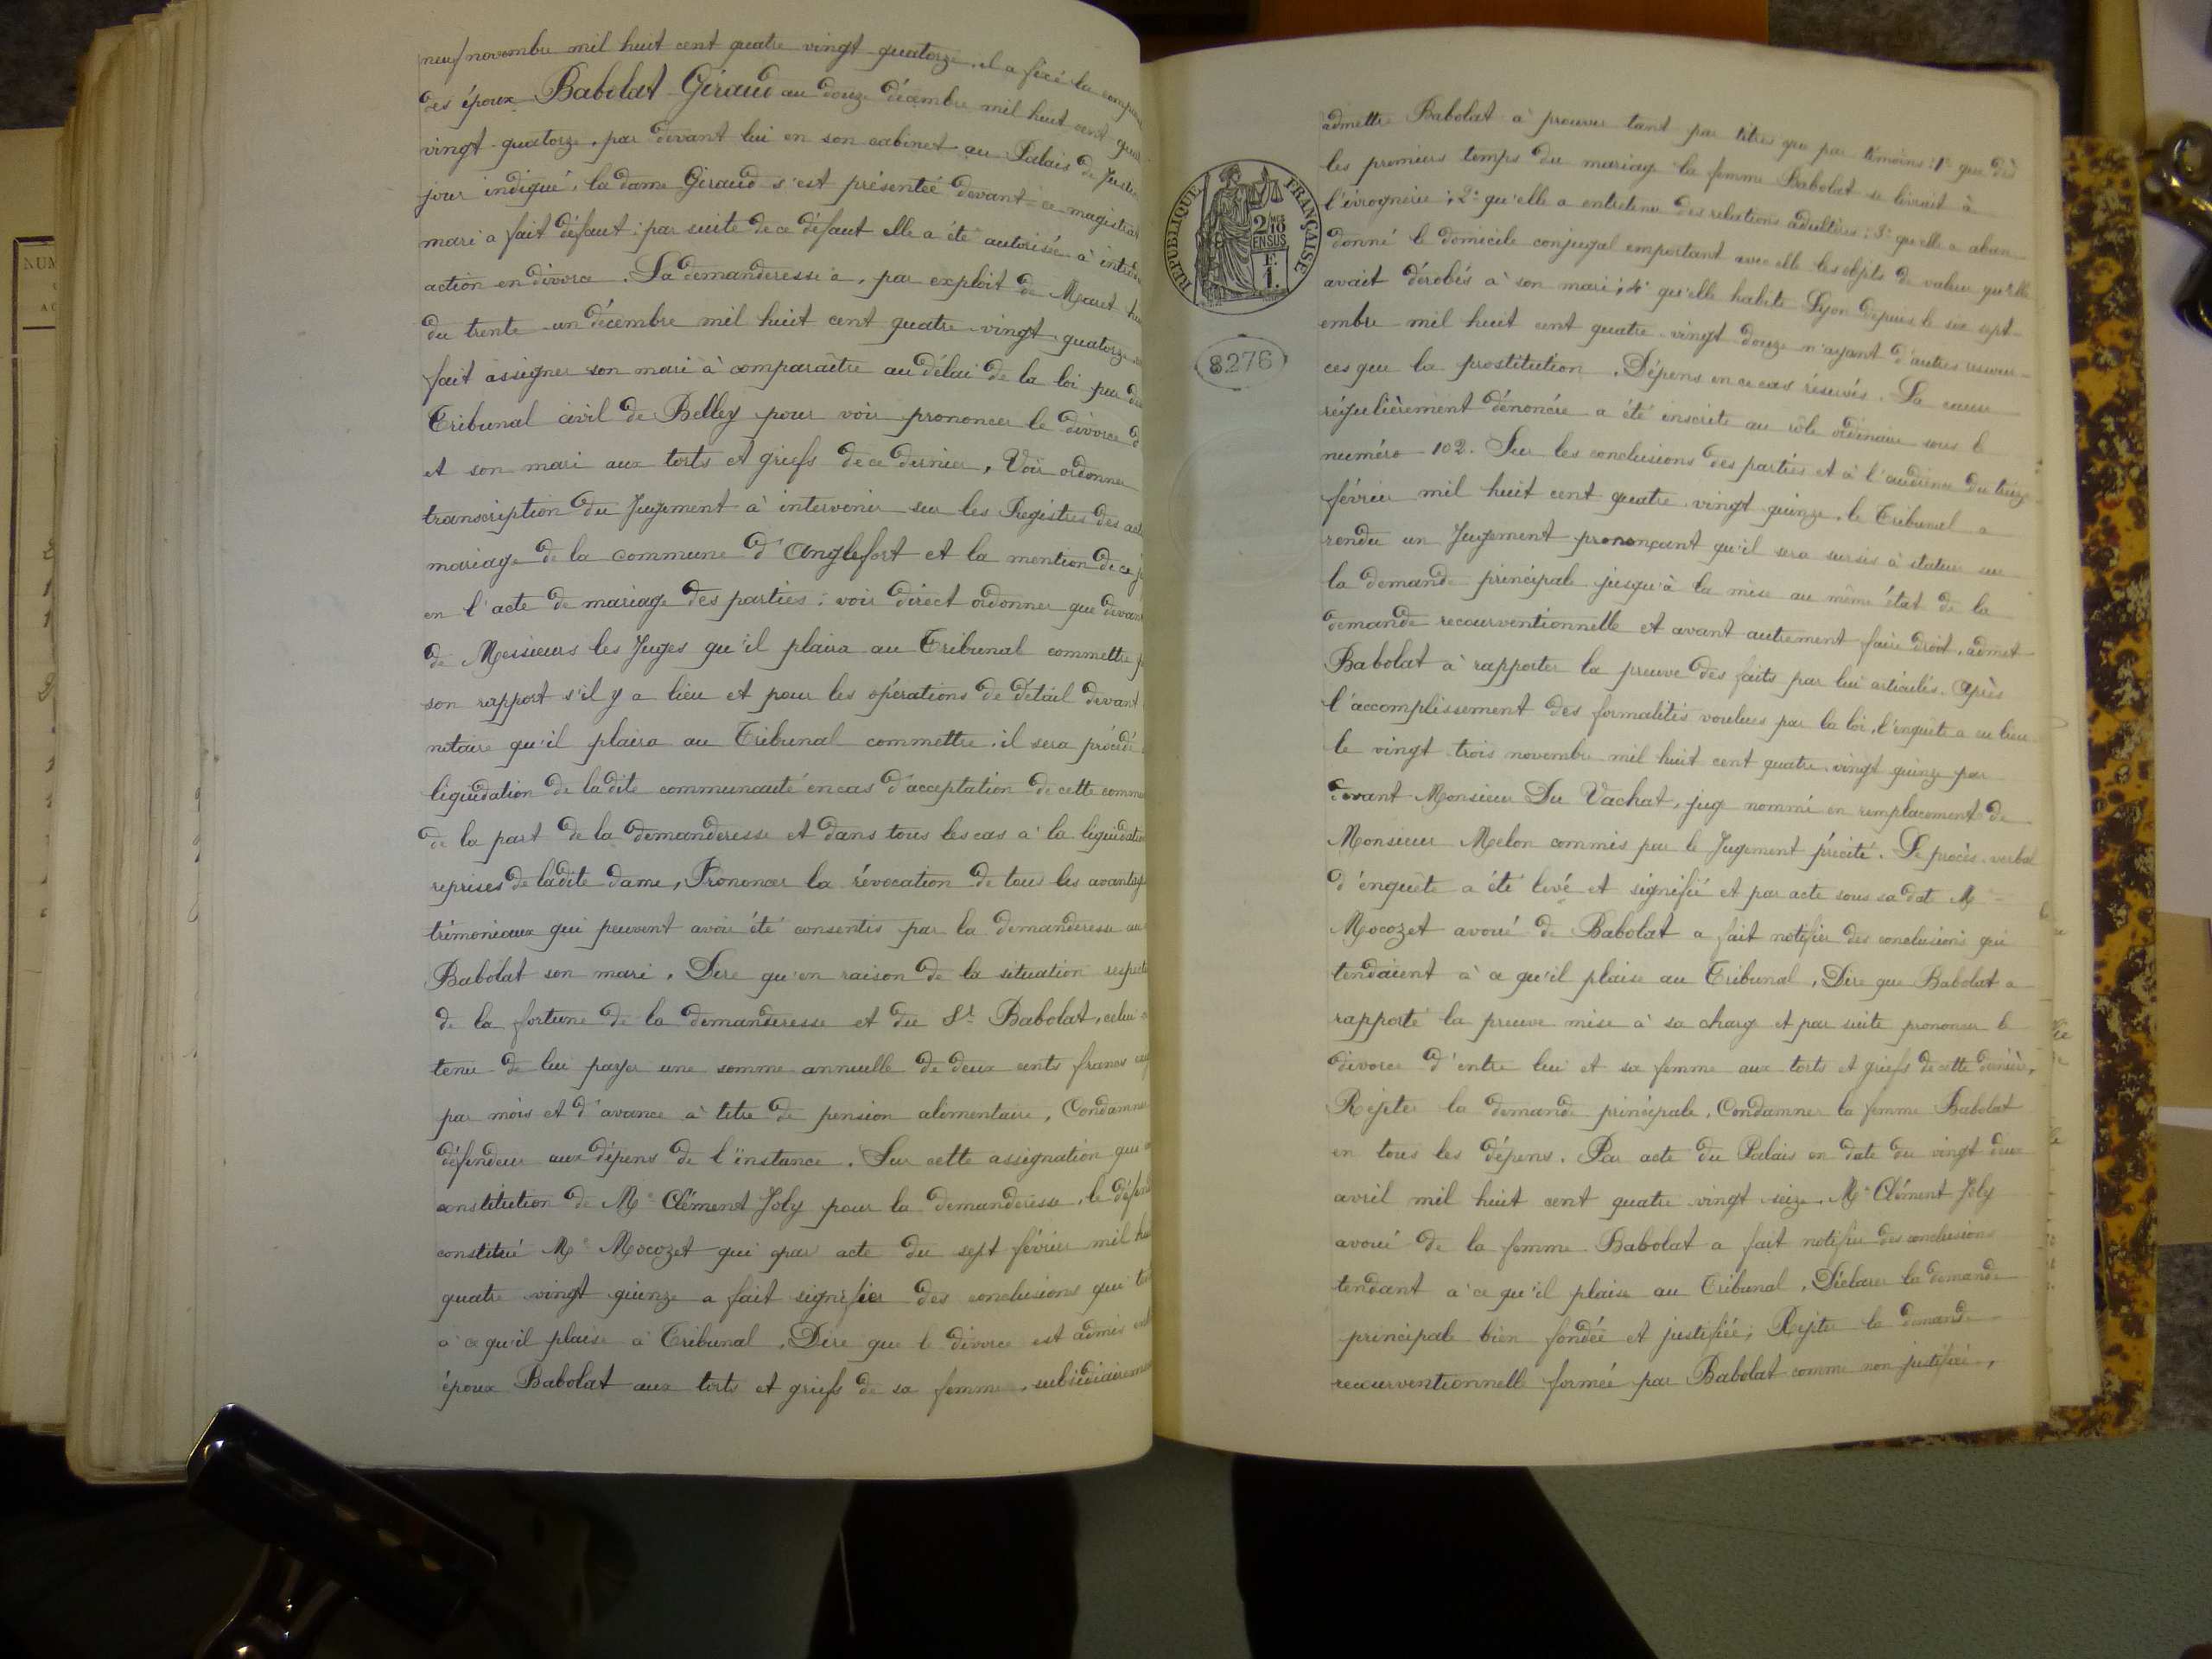 neuf novembre mil huit cent quatre vingt quatorze, il a fixé la
des époux Babolat-Giraud au douze décembre mil huit cent
vingt quatorze, par devant lui en son cabinet au Palais de
jour indiqué, la dame Giraud s'est présentée devant ce magistrat
mari a fait défaut: par suite de ce défaut elle a été autorisée à
action en divorce. La demanderesse a, par exploit de Maret
du trente un décembre mil huit cent quatre vingt quatorze
fait assigner son mari à comparaître au délai de la loi par
Tribunal civil de Belley pour voir prononcer le divorce
et son mari aux torts et griefs de ce dernier, Voir ordonner
transcription du Jugement à intervenir sur les Registres des
mariage de la commune d'Anglefort et la mention de ce
en l'acte de mariage des parties: voir direct ordonner que devant
de Messieurs les Juges qu'il plaira au Tribunal commettre
son rapport s'il y a lieu et pour les opérations de détail devant
notaire qu'il plaira au Tribunal commettre, il sera procédé
liquidation de ladite communauté en cas d'acceptation de cette
de la part de la demanderesse et dans tous les cas à la
reprises de ladite dame, Prononcer la révocation de tous les
trimoniaux qui peuvent avoir été consentis par la demanderesse au
Babolat son mari. Dire qu'en raison de la situation
de la fortune de la demanderesse et du Sr Babolat, celui
tenu de lui payer une somme annuelle de deux cents francs
par mois et d'avance à titre de pension alimentaire, Condamner
défendeur aux dépens de l'instance. Sur cette assignation qui
constitution de Me Clément Joly pour la demanderesse, le
constitué Me Mocozet qui par acte du sept février mil
quatre vingt quinze a fait signifier des conclusions qui
à ce qu'il plaise à Tribunal, Dire que le divorce est admis
époux Babolat aux torts et griefs de sa femme, subsidiairement
admettre Babolat à prouver tant par titres que par témoins: 1° que dès
les premiers temps du mariage la femme Babolat se livrait à
l'ivrognerie; 2° qu'elle a entretenu des relations adultères; 3° qu'elle a aban
donné le domicile conjugal emportant avec elle les objets de valeur qu'elle
avait dérobés à son mari; 4° qu'elle habite Lyon depuis le six sept
embre mil huit cent quatre vingt douze n'ayant d'autres ressour-
ces que la prostitution. Dépens en ce cas réservés. La cause
régulièrement dénoncée a été inscrite au rôle ordinaire sous le
numéro 102. Sur les conclusions des parties et à l'audience du treize
février mil huit cent quatre vingt quinze, le Tribunal a
rendu un Jugement prononçant qu'il sera sursis à statuer sur
la demande principale jusqu'à la mise au même état de la
demande recourventionnelle et avant autrement faire droit, admet
Babolat à rapporter la preuve des faits par lui articulés. Après
l'accomplissement des formalités voulues par la loi, l'enquête a eu lieu
le vingt trois novembre mil huit cent quatre vingt quinze par
devant Monsieur Du Vachat, juge nommé en remplacement de
Monsieur Melon commis par le Jugement précité. Le procès-verbal
d'enquête a été levé et signifié et par acte sous sa date Me
Mocozet avoué de Babolat a fait notifier des conclusions qui
tendaient à ce qu'il plaise au Tribunal, Dire que Babolat a
rapporté la preuve mise à sa charge et par suite prononcer le
divorce d'entre lui et sa femme aux torts et griefs de cette dernière,
Rejeter la demande principale, Condamner la femme Babolat
en tous les dépens. Par acte du Palais en date du vingt deux
avril mil huit cent quatre vingt seize, Me Clément Joly
avoué de la femme Babolat a fait notifier des conclusions
tendant à ce qu'il plaise au Tribunal, Déclarer la demande
principale bien fondée et justifiée; Rejeter la demande
recourventionnelle formée par Babolat comme non justifiée,
RÉPUBLIQUE FRANÇAISE
2/10
EN SUS
F.
1.
8276
NUM